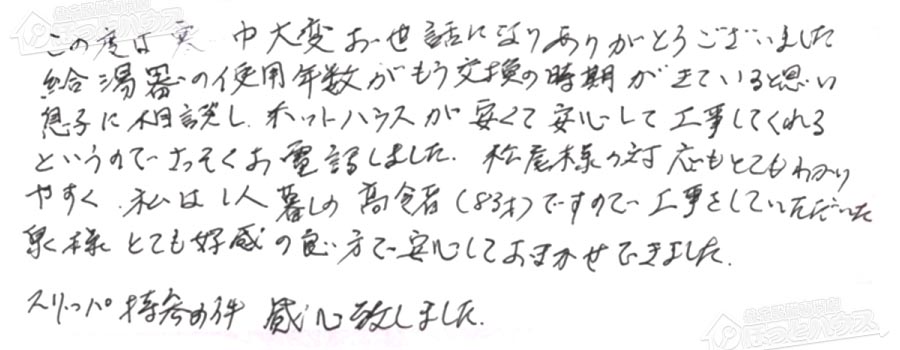 この度は寒中大変お世話になりありがとうございました
給湯器の使用年数がもう交換の時期がきていると思い
息子に相談し、ホットハウスが安くて安心して工事してくれる
というのでさっそくお電話しました。松尾様の対応もとてもわかり
やすく、私は1人暮しの高令者(83才)ですので工事をしていただいた
泉様とても好感の良い方で安心しておまかせできました。
スリッパ持参の件 感心致しました。
ほっとハウス
ほっとハウス